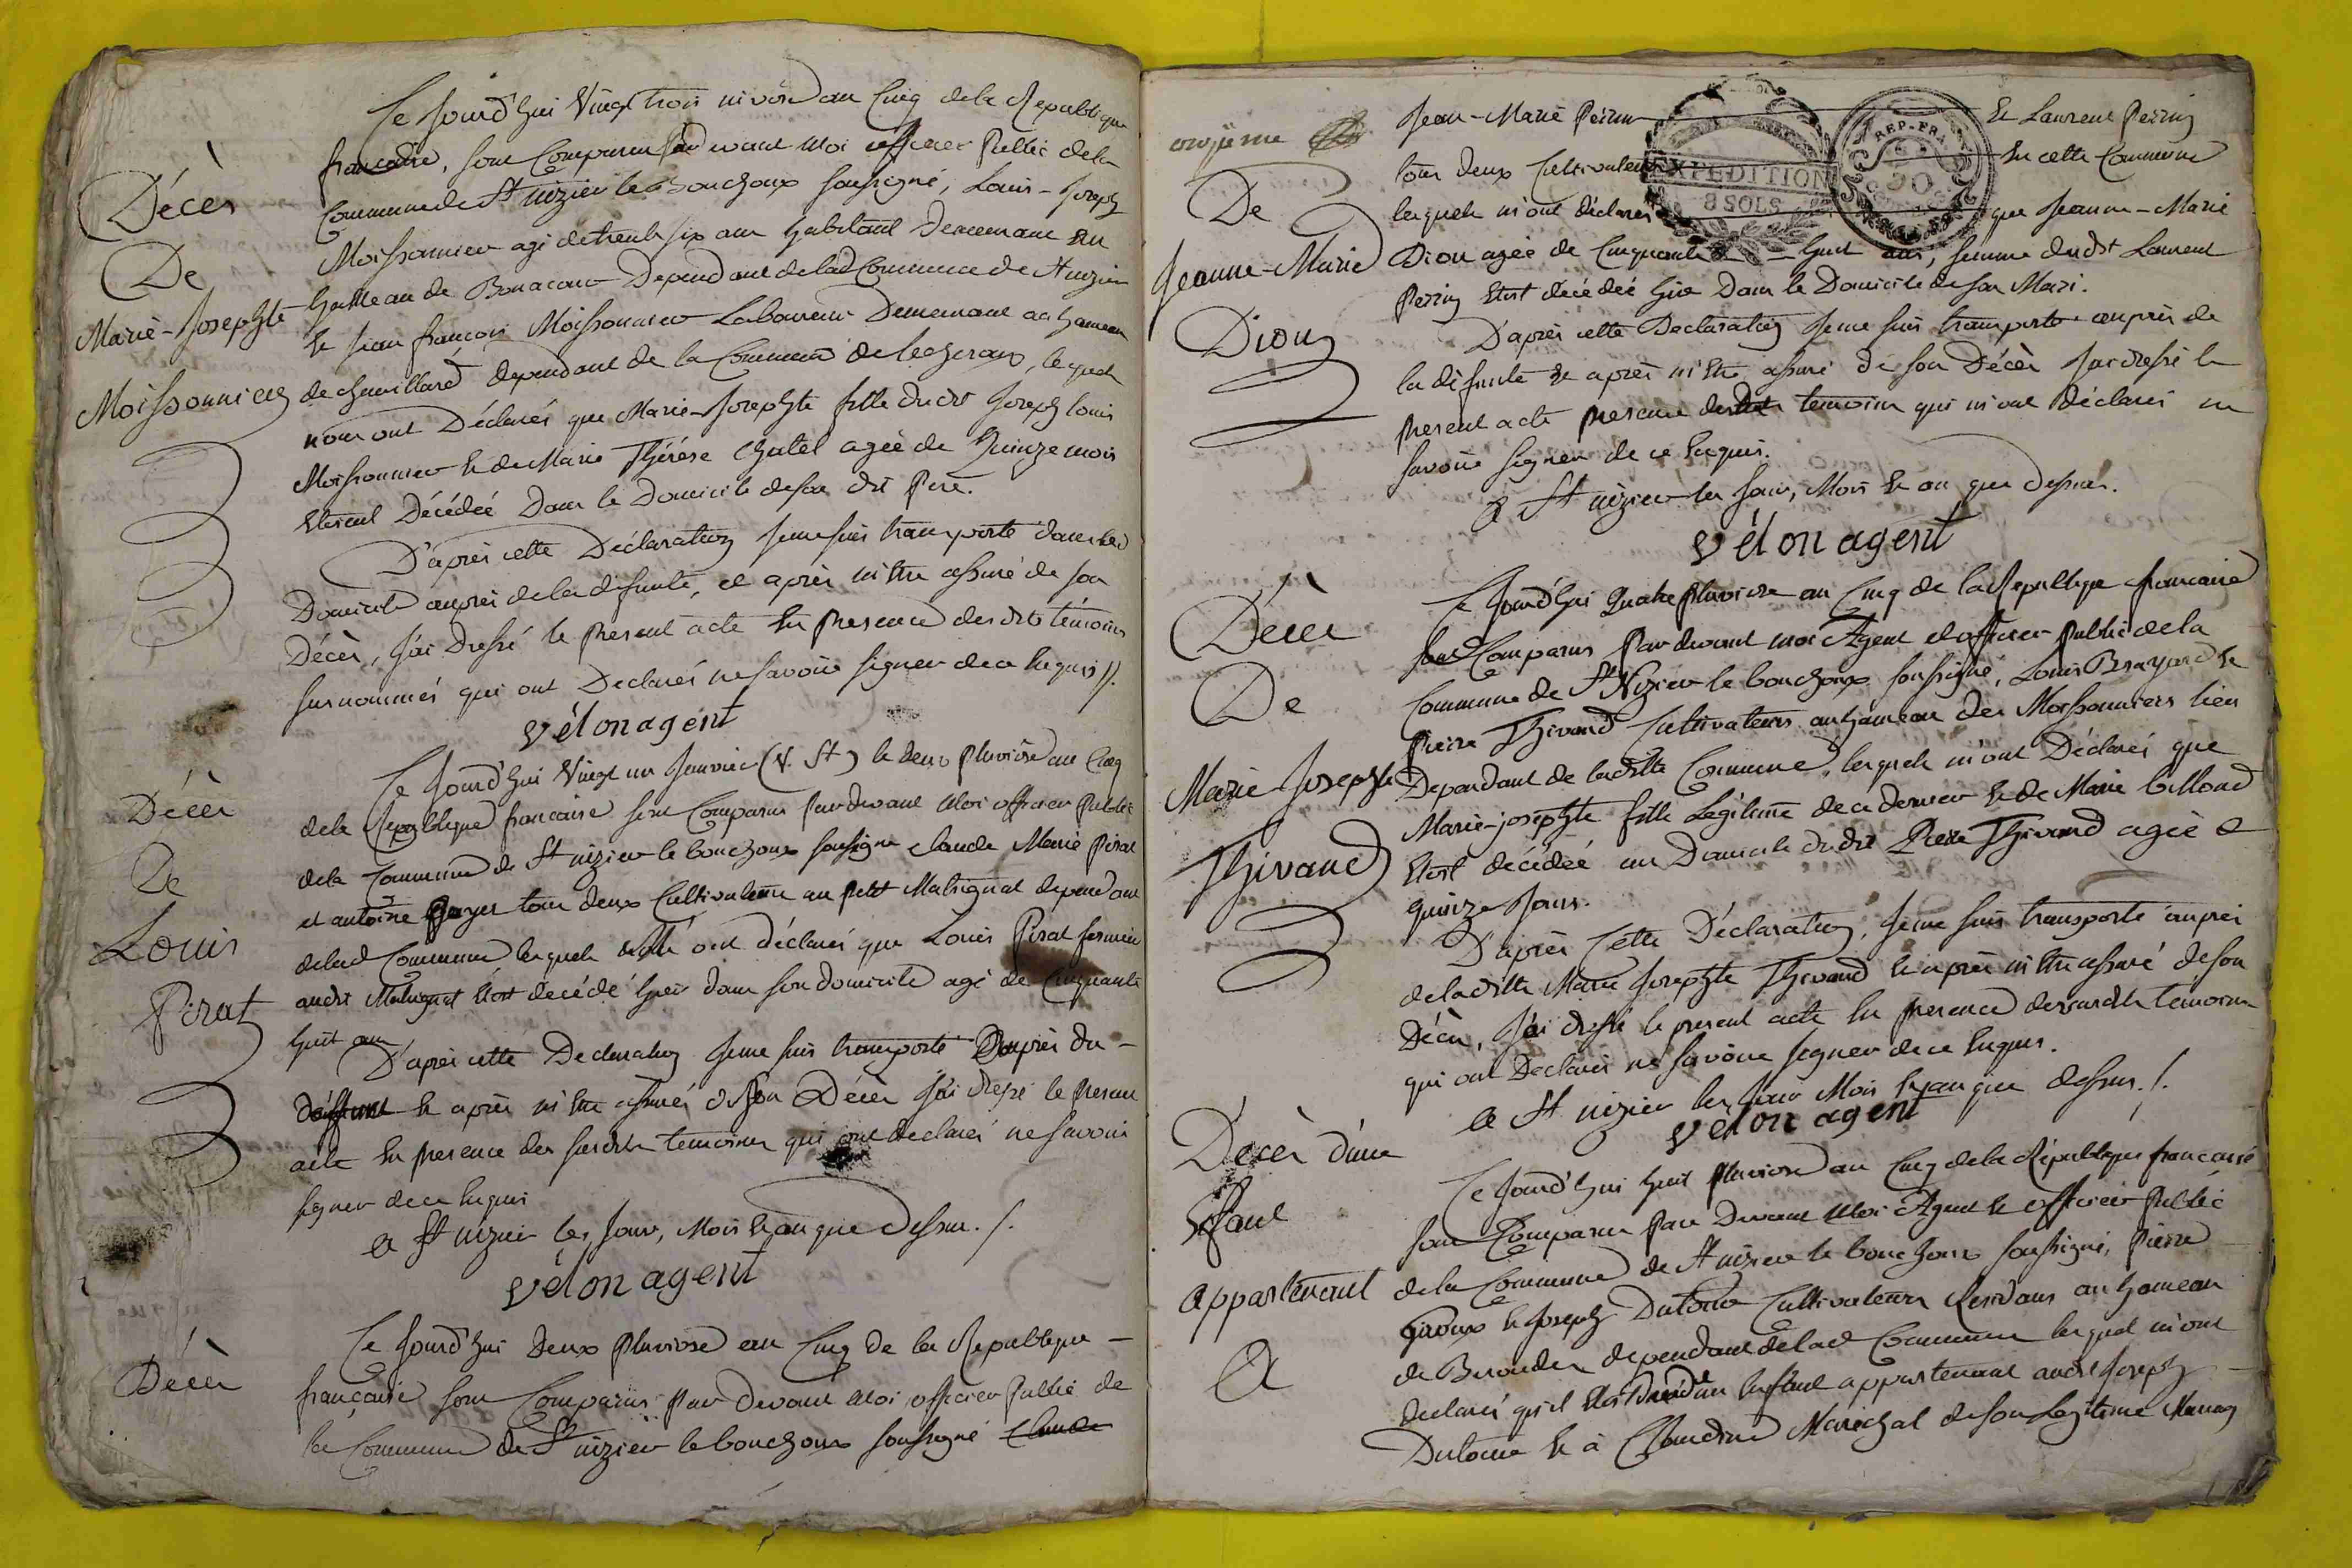 Décès
De
Marie-Josephte
Moissonnier
Ce Jourd'hui Vingt trois nivôse an Cinq de la Republique
francaise, sont Comparus pardevant moi officier Public de la
Commune de St nizier le Bouchoux soussigné, Louis-Joseph
Moissonnier agé de trente six ans habitant Demeurant au
hameau de Bonacour Dependant de lad Commune de St nizier
et jean françois Moissonnier Laboureur Demeurant au hameau
de chevillard dependant de la Commune de lescheroux, lesquels
nous ont Déclarés que Marie-Josephte fille dudit Joseph Louis
Moissonnier et de Marie Thérése Chatel agée de Quinze mois
etoient Décédée Dans le Domicile de son dit Pere.
D'après cette Déclaration Je me suis transporté dans led
Domicile auprès de la défunte, et après m'être assuré de son
Décès, J'ai Dressé le present acte En presence des dits témoins
surnommés qui ont Declarés ne savoir signer de ce Enquis //.
vélon agent
Décès
De
Louis
Pirat
Ce Jourd'hui Vingt un Janvier (V. St) le deux Pluviôse an Cinq
de la Republique francaise sont Comparus pardevant Moi officier Public
de la Commune de St nizier le bouchoux soussigné claude Marie Pirat
et antoine tous deux Cultivateurs au petit Matrignat dependant
de lad Commune lesquels ont déclarés que Louis Pirat fermier
audit Matrignat Etoit decédé hier dans son domicile agé de Cinquante
huit ans
D'après cette Declaration Je me suis transporté auprès du
deffunt Et après m'être assurés de son Décès J'ai dressé le present
acte En presence des susdits temoins qui ont declarés ne savoir
signer de ce Enquis
a St nizier les Jour, Mois Et an que Dessus. /.
vélon agent
Décès
Ce Jourd'hui Deux Pluviose an Cinq de la Republique
française sont Comparus Par Devant Moi officier Public de
la Commune de St nizier le bouchoux soussigné Claude
onzième
De
Jeanne-Marie
Dion
Jean-Marie Perrin Et Laurent Perrin
tous deux Cultivateurs En cette Commune
EXPEDITION
8 SOLS
REP. FR.
lesquels m'ont déclarés que Jeanne-Marie
Dion agée de Cinquante huit ans, femme dudit Laurent
Perrin Etoit décédée hier Dans le Domicile de son Mari.
D'après cette Declaration Je me suis transporté auprès de
la défunte et après m'être assuré de son Décès J'ai dressé le
present acte presence desdits temoins qui m'ont déclarés ne
savoir signer de ce Enquis.
a St nizier les Jour, Mois et an que Dessus.
vélon agent
Décès
De
Marie Josephte
Thivand
Ce Jourd'hui Quatre Pluviose an Cinq de la Republique francaise
sont Comparus Pardevant moi Agent et officier Public de la
Commune de St Nizier le bouchoux soussigné, Louis Brayard et
Pierre Thivand Cultivateurs au hameau des Moissonniers lieu
Dependant de laditte Commune, lesquels m'ont Déclarés que
Marie-josephte fille Légitime de ce dernier et de Marie billond
Etoit décédée au Domicile dudit Pierre Thivand agée de
quinze Jours.
D'après Cette Déclaration, Je me suis transporté auprès
de laditte Marie Josephte Thivand et après m'être assuré de son
Décès, J'ai dressé le present acte En presence des susdits temoins
qui ont Declarés ne savoir signer de ce Enquis.
a St nizier les Jour Mois et an que dessus. /.
vélon agent
Décès d'un
Enfant
appartenant
a
Ce Jourd'hui huit Pluviose an Cinq de la République francaise
sont Comparus Par Devant Moi Agent et officier Public
de la Commune de St nizier le bouchoux soussigné, Pierre
Giroux et Joseph Dutour Cultivateurs Residans au hameau
de dependant de lad Commune lesquel m'ont
declarés qu'il Etoit un Enfant appartenant audit Joseph
Dutour et à Claudine Maréchal de son Legitime Mariag